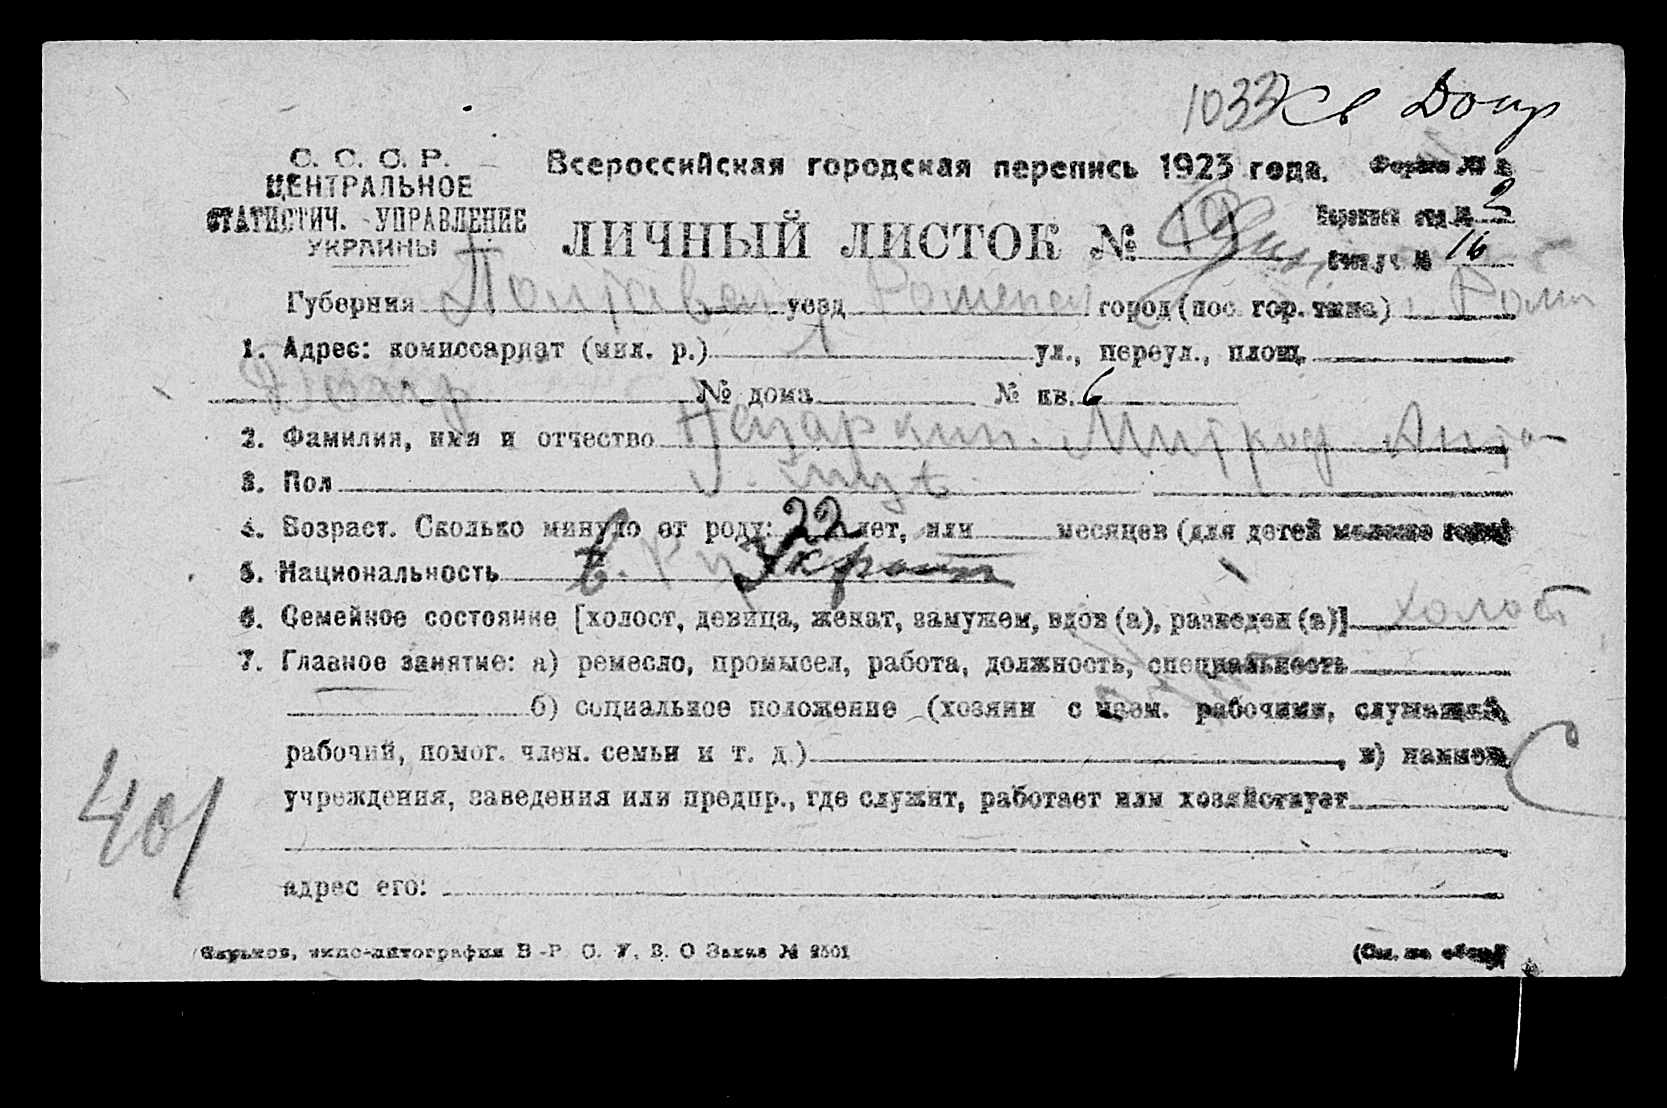 1033 Св Допр
С. С. С. Р.
ЦЕНТРАЛЬНОЕ
СТАТИСТИЧ. УПРАВЛЕНИЕ
УКРАИНЫ
Всероссийская городская перепись 1923 года.
Форма №
ЛИЧНЫЙ ЛИСТОК № 19
Переписн отд. № 2
Счетн. уч. № 16
Губерния Полтавск уезд Роменск город (пос. гор. типа) Ромн
1. Адрес: комиссариат (мил. р.) 1 ул., переул., площ.
Допр № дома № кв. 6
2. Фамилия, имя и отчество Митроф Анто-
3. Пол муж
4. Возраст. Сколько минуло от роду: 22 лет, или месяцев (для детей моложе года)
5. Национальность Украин
6. Семейное состояние [холост, девица, женат, замужем, вдов (а), разведен (а)] холост
7. Главное занятие: а) ремесло, промысел, работа, должность, специальность
б) социальное положение (хозяин с наем. рабочими, служащий,
рабочий, помог. член. семьи и т. д.) , в) наимен.
учреждения, заведения или предпр., где служит, работает или хозяйствует
адрес его:
401
Харьков, типо-литография В-Р. С. У. В. О Заказ № 2501
(См. на обор.)